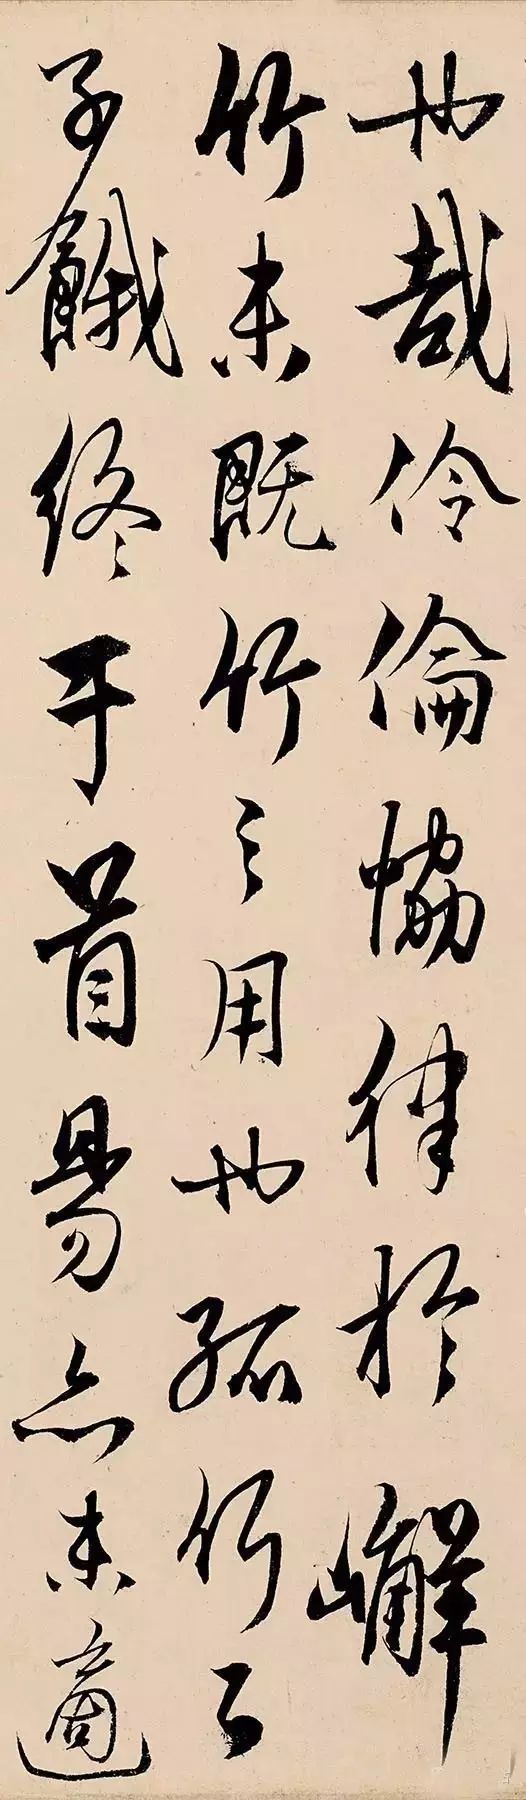 也哉伶倫恊律於嶰
竹未既竹之用也孤竹二
子餓終于首昜亦未適